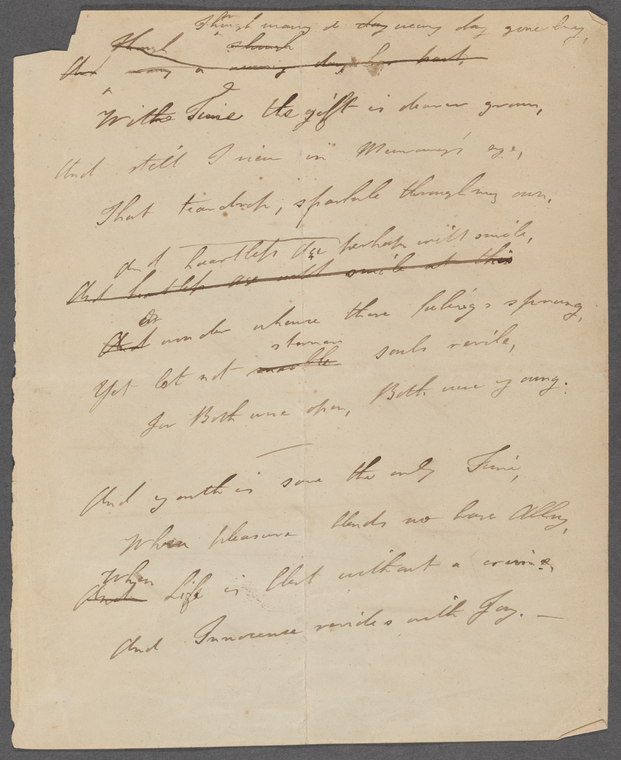 Though many a day weary day gone by,
Though Though
And many a weary day has past,
With Time the gift is dearer grown,
And still I view in Memory's eye,
That teardrop, sparkle through my own,
And heartless Age perhaps will smile,
And heartless age will smile at this
Or
And wonder whence those feelings sprung,
sterner
Yet let not souls revile,
For Both were open, Both were young.
And youth is sure the only Time,
When pleasure blends no base Alloy,
When
And Life is blest without a crime,
And Innocence resides with Joy. —